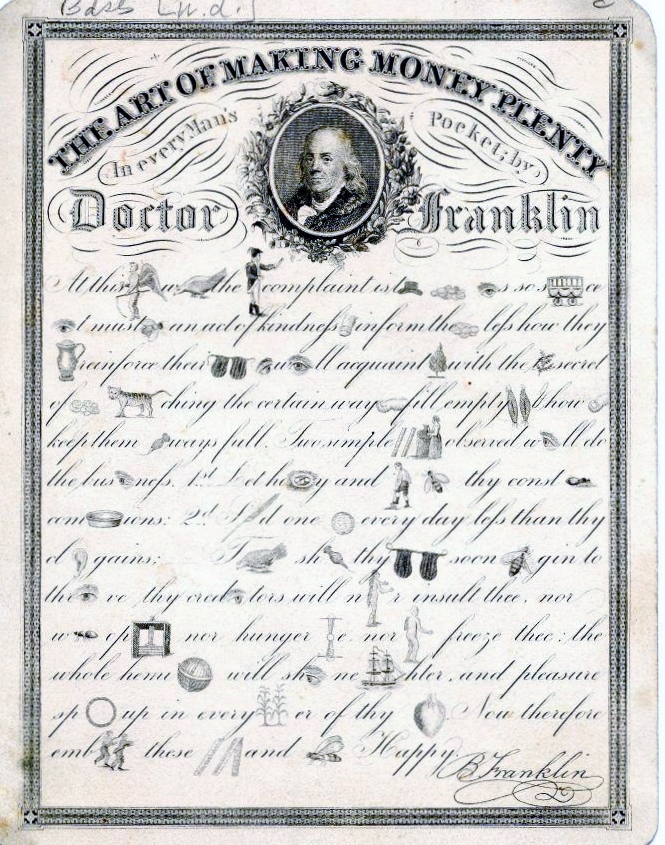 Bash [n.d.]
THE ART OF MAKING MONEY PLENTY
In every Man's Pocket; by
Doctor Franklin
At this w the complaint is t s so s ce
t must an act of kindness inform the less how they
reinforce their w ll acquaint with the secret
of ching the certain way fill empty & how
keep them ways full. Two simple observed w ll do
the bus ness. 1st Let ho y and thy const
com ions: 2d S d one every day less than thy
d gains; T sh thy soon gin to
th ve thy cred tors will n r insult thee, nor
w op nor hunger e. nor freeze thee: the
whole hemi will sh ne hter, and pleasure
sp up in every er of thy Now therefore
emb these and Happy.
B Franklin